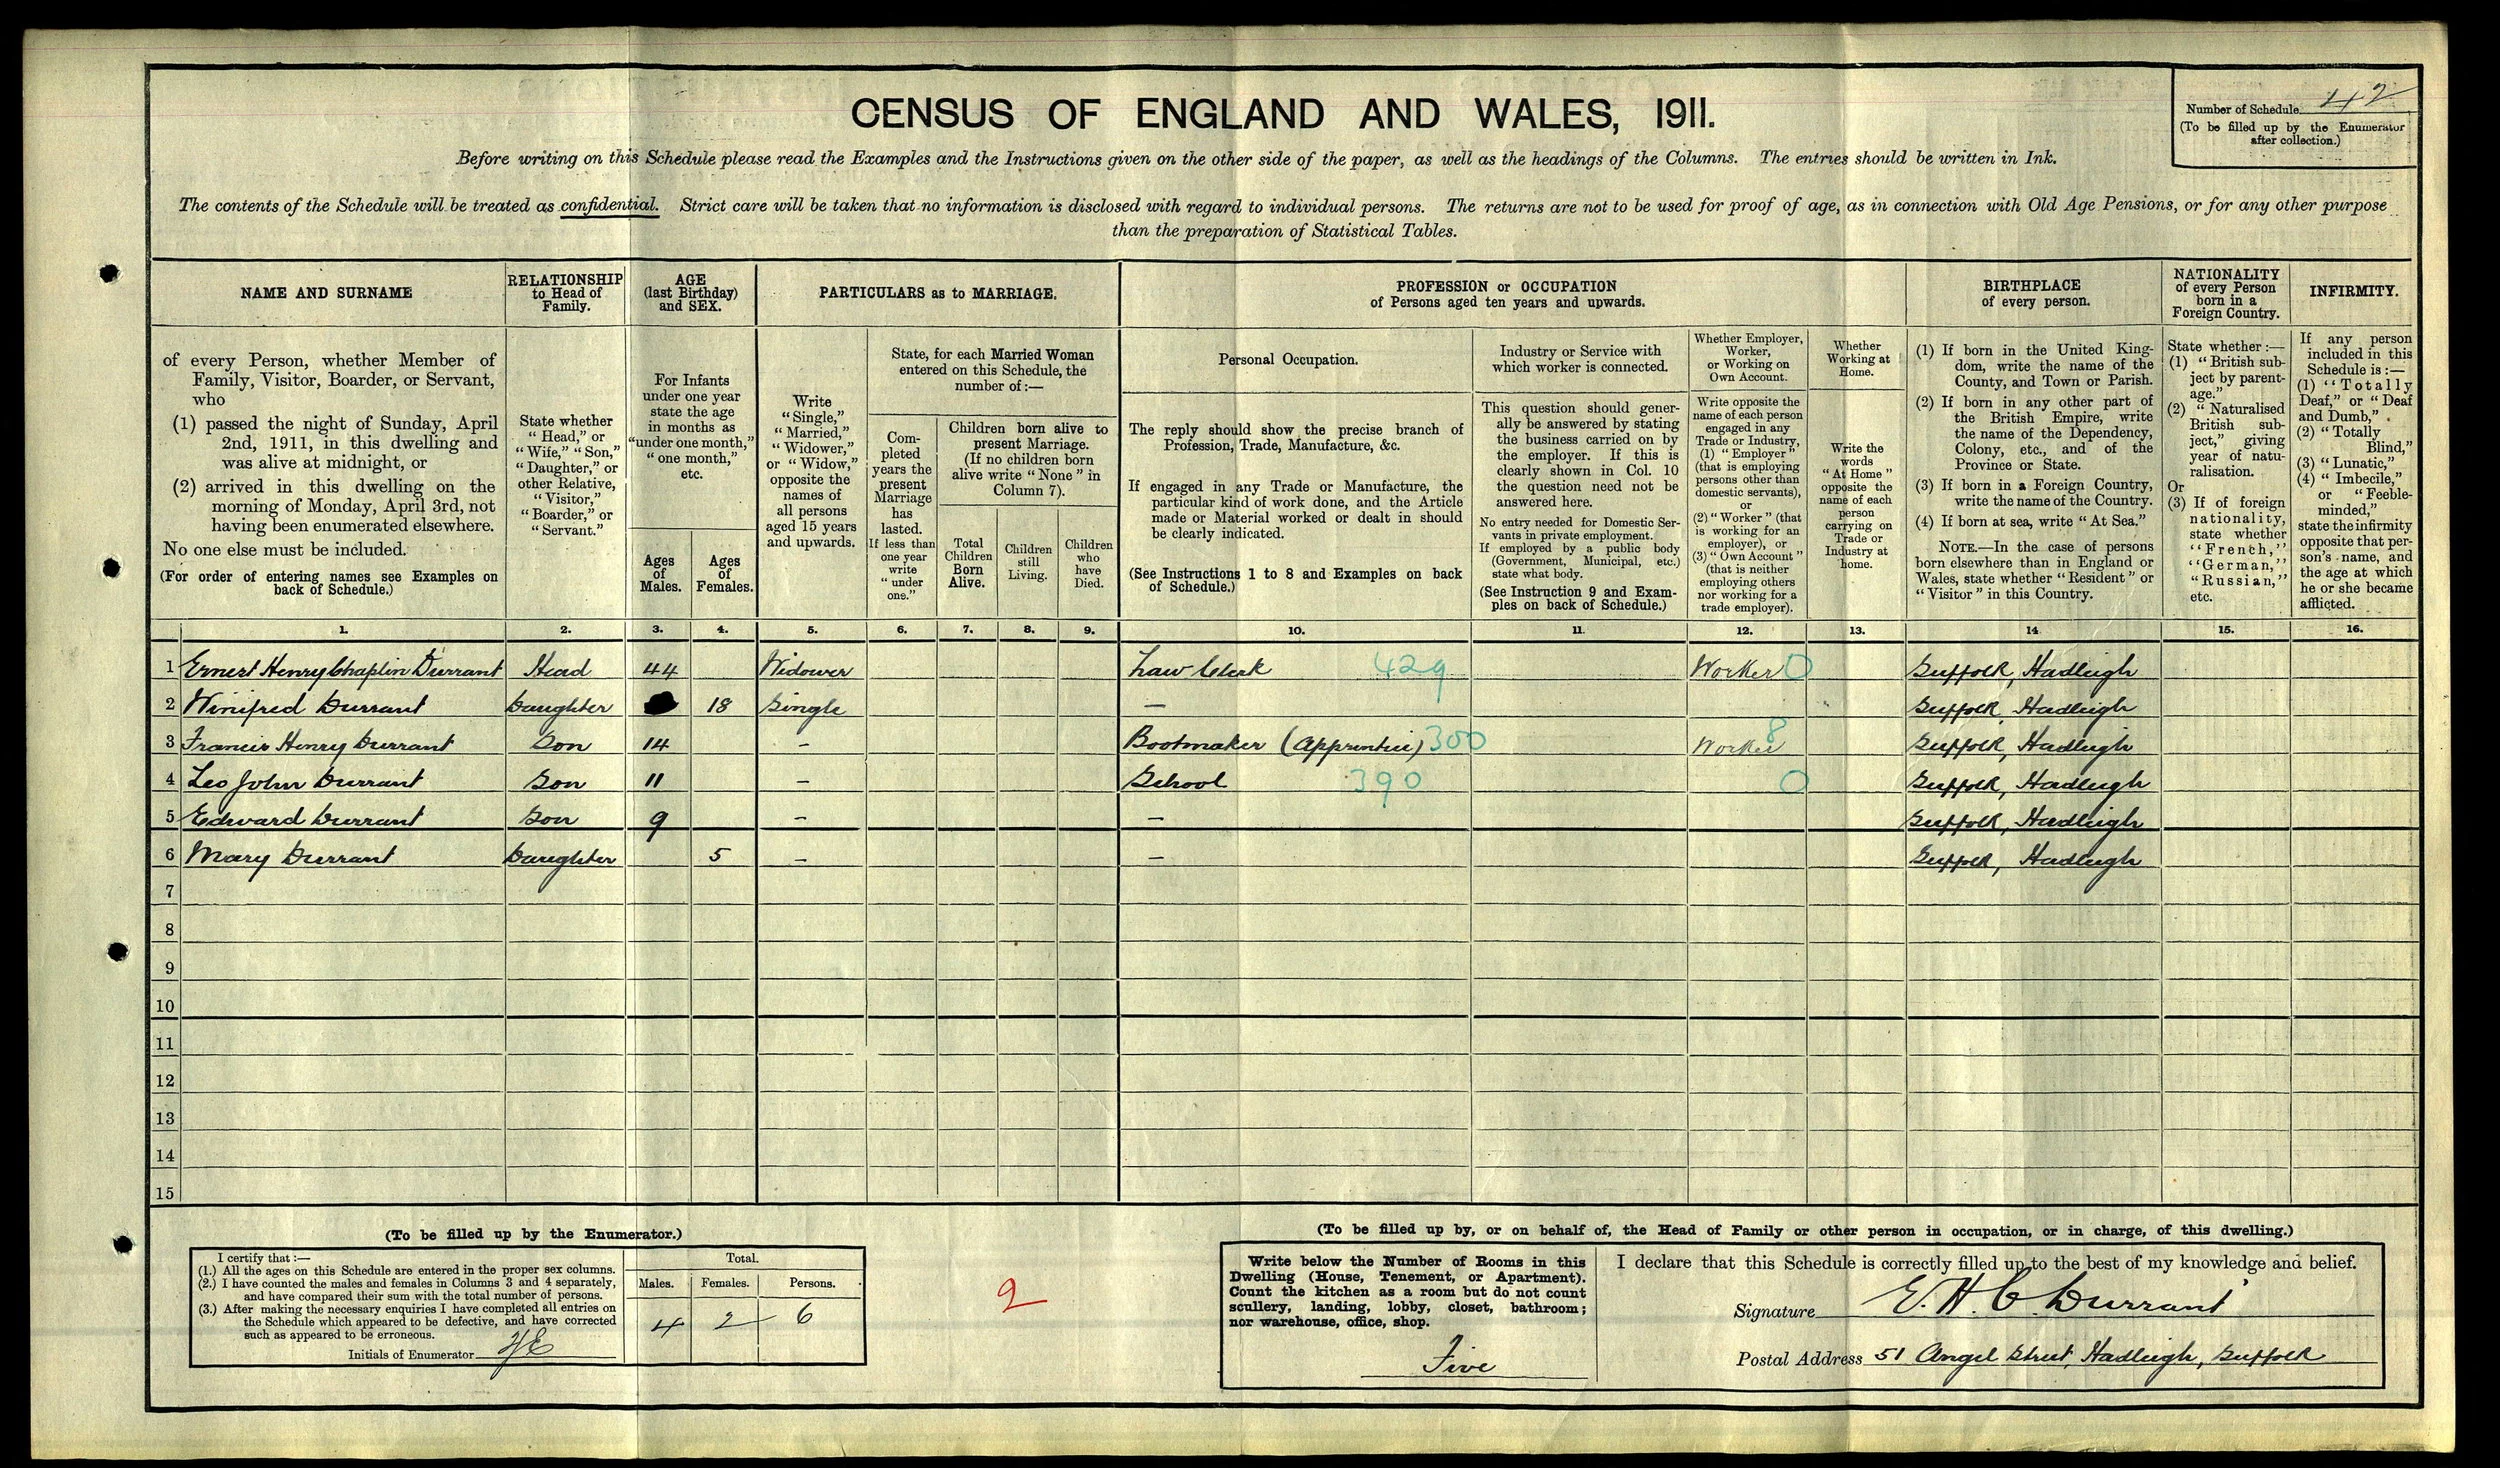 CENSUS OF ENGLAND AND WALES, 1911.
Number of Schedule 42
(To be filled up by the Enumerator
after collection.)
Before writing on this Schedule please read the Examples and the Instructions given on the other side of the paper, as well as the headings of the Columns. The entries should be written in Ink.
The contents of the Schedule will be treated as confidential. Strict care will be taken that no information is disclosed with regard to individual persons. The returns are not to be used for proof of age, as in connection with Old Age Pensions, or for any other purpose
than the preparation of Statistical Tables.
NAME AND SURNAME
RELATIONSHIP
to Head of
Family.
AGE
(last Birthday)
and SEX.
PARTICULARS as to MARRIAGE.
PROFESSION or OCCUPATION
of Persons aged ten years and upwards.
BIRTHPLACE
of every person.
NATIONALITY
of every Person
born in a
Foreign Country.
INFIRMITY.
of every Person, whether Member of
Family, Visitor, Boarder, or Servant,
who
(1) passed the night of Sunday, April
2nd, 1911, in this dwelling and
was alive at midnight, or
(2) arrived in this dwelling on the
morning of Monday, April 3rd, not
having been enumerated elsewhere.
No one else must be included.
(For order of entering names see Examples on
back of Schedule.)
State whether
"Head," or
"Wife," "Son,"
"Daughter," or
other Relative,
"Visitor,"
"Boarder," or
"Servant."
For Infants
under one year
state the age
in months as
"under one month,"
"one month,"
etc.
Ages
of
Males.
Ages
of
Females.
Write
"Single,"
"Married,"
"Widower,"
or "Widow,"
opposite the
names of
all persons
aged 15 years
and upwards.
State, for each Married Woman
entered on this Schedule, the
number of:—
Com-
pleted
years the
present
Marriage
has
lasted.
If less than
one year
write
"under
one."
Children born alive to
present Marriage.
(If no children born
alive write "None" in
Column 7).
Total
Children
Born
Alive.
Children
still
Living.
Children
who
have
Died.
Personal Occupation.
The reply should show the precise branch of
Profession, Trade, Manufacture, &c.
If engaged in any Trade or Manufacture, the
particular kind of work done, and the Article
made or Material worked or dealt in should
be clearly indicated.
(See Instructions 1 to 8 and Examples on back
of Schedule.)
Industry or Service with
which worker is connected.
This question should gener-
ally be answered by stating
the business carried on by
the employer. If this is
clearly shown in Col. 10
the question need not be
answered here.
No entry needed for Domestic Ser-
vants in private employment.
If employed by a public body
(Government, Municipal, etc.)
state what body.
(See Instruction 9 and Exam-
ples on back of Schedule.)
Whether Employer,
Worker,
or Working on
Own Account.
Write opposite the
name of each person
engaged in any
Trade or Industry,
(1) "Employer"
(that is employing
persons other than
domestic servants),
or
(2) "Worker" (that
is working for an
employer), or
(3) "Own Account"
(that is neither
employing others
nor working for a
trade employer).
Whether
Working at
Home.
Write the
words
"At Home"
opposite the
name of each
person
carrying on
Trade or
Industry at
home.
(1) If born in the United King-
dom, write the name of the
County, and Town or Parish.
(2) If born in any other part of
the British Empire, write
the name of the Dependency,
Colony, etc., and of the
Province or State.
(3) If born in a Foreign Country,
write the name of the Country.
(4) If born at sea, write "At Sea."
NOTE.—In the case of persons
born elsewhere than in England or
Wales, state whether "Resident" or
"Visitor" in this Country.
State whether:—
(1) "British sub-
ject by parent-
age."
(2) "Naturalised
British sub-
ject," giving
year of natu-
ralisation.
Or
(3) If of foreign
nationality,
state whether
"French,"
"German,"
"Russian,"
etc.
If any person
included in this
Schedule is:—
(1) "Totally
Deaf," or "Deaf
and Dumb,"
(2) "Totally
Blind,"
(3) "Lunatic,"
(4) "Imbecile,"
or "Feeble-
minded,"
state the infirmity
opposite that per-
son's name, and
the age at which
he or she became
afflicted.
1. 2. 3. 4. 5. 6. 7. 8. 9. 10. 11. 12. 13. 14. 15. 16.
1 Ernest Henry Chaplin Durrant Head 44 Widower Law Clerk 429 Worker 0 Suffolk, Hadleigh
2 Winifred Durrant Daughter 18 Single — Suffolk, Hadleigh
3 Francis Henry Durrant Son 14 – Bootmaker (Apprentice) 300 Worker 8 Suffolk, Hadleigh
4 Leo John Durrant Son 11 – School 390 0 Suffolk, Hadleigh
5 Edward Durrant Son 9 – — Suffolk, Hadleigh
6 Mary Durrant Daughter 5 – — Suffolk, Hadleigh
7
8
9
10
11
12
13
14
15
(To be filled up by the Enumerator.)
I certify that:—
(1.) All the ages on this Schedule are entered in the proper sex columns.
(2.) I have counted the males and females in Columns 3 and 4 separately,
and have compared their sum with the total number of persons.
(3.) After making the necessary enquiries I have completed all entries on
the Schedule which appeared to be defective, and have corrected
such as appeared to be erroneous.
Initials of Enumerator
Total.
Males. Females. Persons.
4 2 6
2
(To be filled up by, or on behalf of, the Head of Family or other person in occupation, or in charge, of this dwelling.)
Write below the Number of Rooms in this
Dwelling (House, Tenement, or Apartment).
Count the kitchen as a room but do not count
scullery, landing, lobby, closet, bathroom;
nor warehouse, office, shop.
Five
I declare that this Schedule is correctly filled up to the best of my knowledge and belief.
Signature E. H. C. Durrant
Postal Address 51 Angel Street, Hadleigh, Suffolk